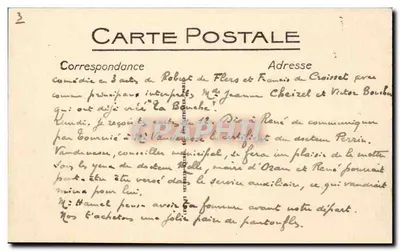 3
CARTE POSTALE
Correspondance Adresse
comédie en 3 actes de Robert de Flers et Francis de Croisset avec
comme principaux interprètes, Mme Jeanne Cheirel et Victor Boucher
qui ont déjà créé "La Bouche".
Lundi, je reçois lettre Dis à René de communiquer
par du docteur Perrin.
Vandevesse, conseiller municipal, se fera un plaisir de la mettre
sous les yeux du docteur Molle, maire d'Oran et René pourrait
peut-être être versé dans le service auxiliaire, ce qui vaudrait
mieux pour lui.
Mr Hamel pense avoir sa fourrure avant notre départ.
Nos t'achetons une jolie paire de pantoufles.